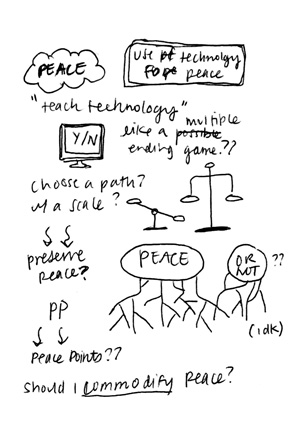 PEACE
use of technology
FOR peace
"teach technology"
like a possible multiple
ending game.??
Y/N
choose a path?
w/ a scale?
preserve
peace?
PP
Peace Points??
PEACE
OR
NOT
??
(idk)
should I commodify peace?